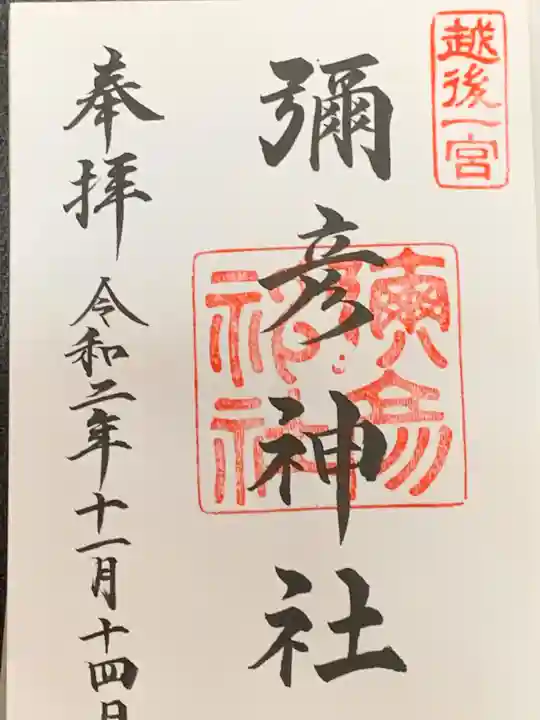 越後一宮
彌彦神社
奉拝
令和二年十一月十四日